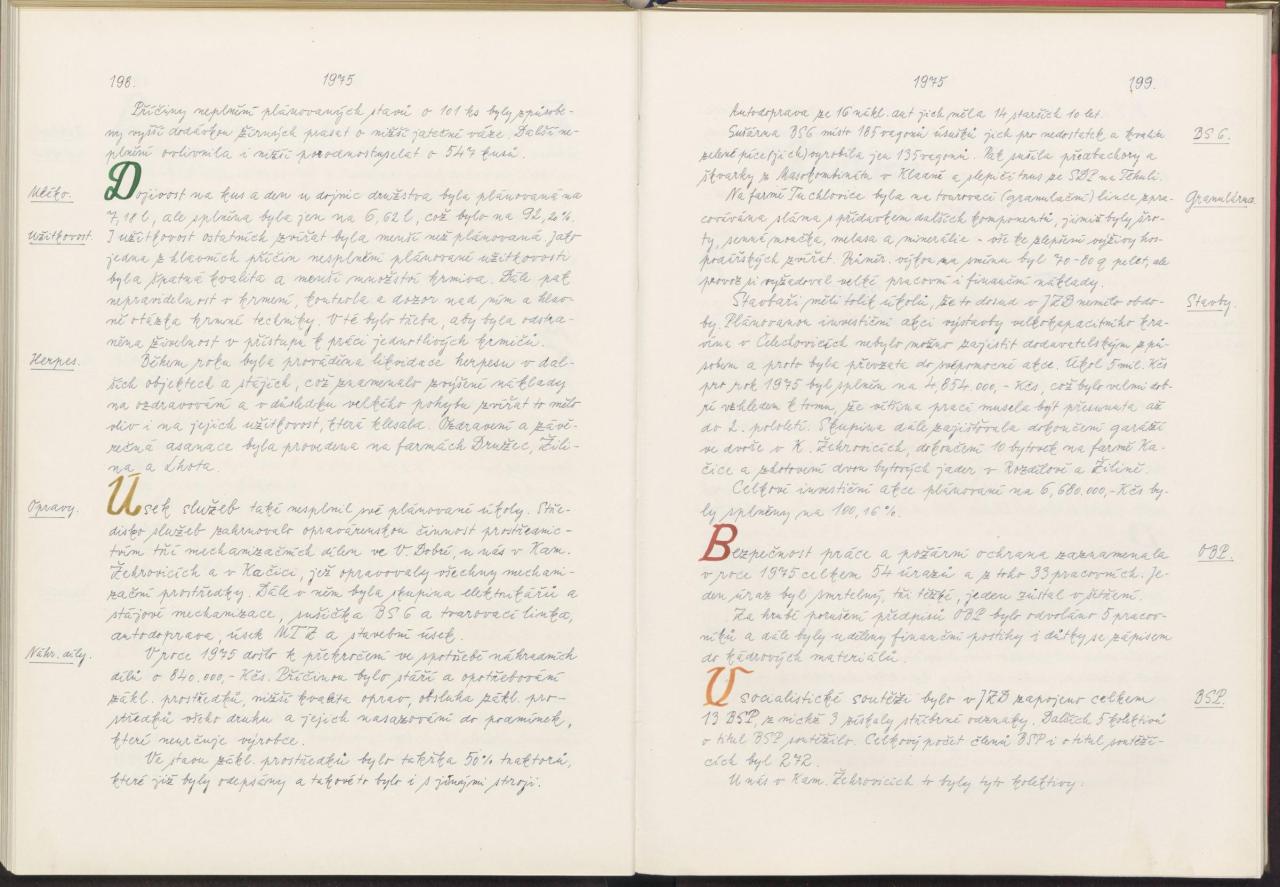 198.
1975
Příčiny neplnění plánovaných stavů o 101 ks byly způsobe-
ny vyšší dodávkou žírných prasat o nižší jateční váze. Další ne-
plnění ovlivnila i nižší porodnost selat o 547 kusů.
Mléko.
Dojivost na kus a den u dojnic družstva byla plánovaná na
7,18 l, ale splněna byla jen na 6,62 l, což bylo na 92,20%.
Užitkovost.
I užitkovost ostatních zvířat byla menší než plánovaná. Jako
jedna z hlavních příčin nesplnění plánované užitkovosti
byla špatná kvalita a menší množství krmiva. Dále pak
nepravidelnost v krmení, kontrola a dozor nad ním a hlav-
ně otázka krmné techniky. V té bylo třeba, aby byla odstra-
něna živelnost v přístupu k práci jednotlivých krmičů.
Herpes.
Během roku byla prováděna likvidace herpesu v dal-
ších objektech a stájích, což znamenalo zvýšené náklady
na ozdravování a v důsledku velkého pohybu zvířat to mělo
vliv i na jejich užitkovost, která klesala. Ozdravení a závě-
rečná asanace byla provedena na farmách Družec, Žili-
na a Lhota.
Opravy.
Úsek služeb také nesplnil své plánované úkoly. Stře-
disko služeb zahrnovalo opravárenskou činnost prostřednic-
tvím tří mechanizačních dílen ve V. Dobré, u nás v Kam.
Žehrovicích a v Kačici, jež opravovaly všechny mechani-
zační prostředky. Dále v něm byla skupina elektrikářů a
stájové mechanizace, sušička BS 6 a tvarovací linka,
autodoprava, úsek MTZ a stavební úsek.
Náhr. díly.
V roce 1975 došlo k překročení ve spotřebě náhradních
dílů o 840.000,- Kčs. Příčinou bylo stáří a opotřebování
zákl. prostředků, nižší kvalita oprav, obsluha zákl. pro-
středků všeho druhu a jejich nasazování do podmínek,
které neurčuje výrobce.
Ve stavu zákl. prostředků bylo takřka 50% traktorů,
které již byly odepsány a takové to bylo i s jinými stroji.
1975
199.
Autodoprava ze 16 nákl. aut jich měla 14 starších 10 let.
BS 6.
Sušárna BS6 místo 185 vagonů úsušků jich pro nedostatek a kvalitu
zelené píce (jich) vyrobila jen 135 vagonů. Pak sušila předbachory a
škvarky z Masokombinátu v Kladně a slepičí trus ze SDP na Tehuli.
Granulárna
Na farmě Tuchlovice byla na tvarovací (granulační) lince zpra-
covávána sláma s přídavkem dalších komponentů, jimiž byly šro-
ty, senná moučka, melasa a minerálie - vše ke zlepšení výživy hos-
podářských zvířat. Průměr. výkon na směnu byl 70-80 q pelet, ale
provoz si vyžadoval velké pracovní i finanční náklady.
Stavby.
Stavbaři měli tolik úkolů, že to dosud v JZD nemělo obdo-
by. Plánovanou investiční akci výstavby velkokapacitního kra-
vína v Čelechovicích nebylo možno zajistit dodavatelským způ-
sobem a proto byla převzata do svépomocné akce. Úkol 5 mil. Kčs
pro rok 1975 byl splněn na 4,854.000,- Kčs, což bylo velmi dob-
ré vzhledem k tomu, že většina prací musela být přesunuta až
do 2. pololetí. Skupina dále zajišťovala dokončení garáží
ve dvoře v K. Žehrovicích, dokončení 10 bytovek na farmě Ka-
čice a zhotovení dvou bytových jader v Rozdělově a Žilině.
Celkové investiční akce plánované na 6,680.000,- Kčs by-
ly splněny na 100,16%.
OBP.
Bezpečnost práce a požární ochrana zaznamenala
v roce 1975 celkem 54 úrazů a z toho 33 pracovních. Je-
den úraz byl smrtelný, tři těžké, jeden zůstal v šetření.
Za hrubé porušení předpisů OBP bylo odvoláno 5 pracov-
níků a dále byly uděleny finanční postihy i důtky se zápisem
do kádrových materiálů.
BSP.
V socialistické soutěži bylo v JZD zapojeno celkem
13 BSP, z nichž 3 získaly stříbrné odznaky. Dalších 5 kolektivů
o titul BSP soutěžilo. Celkový počet členů BSP i o titul soutěží-
cích byl 272.
U nás v Kam. Žehrovicích to byly tyto kolektivy: